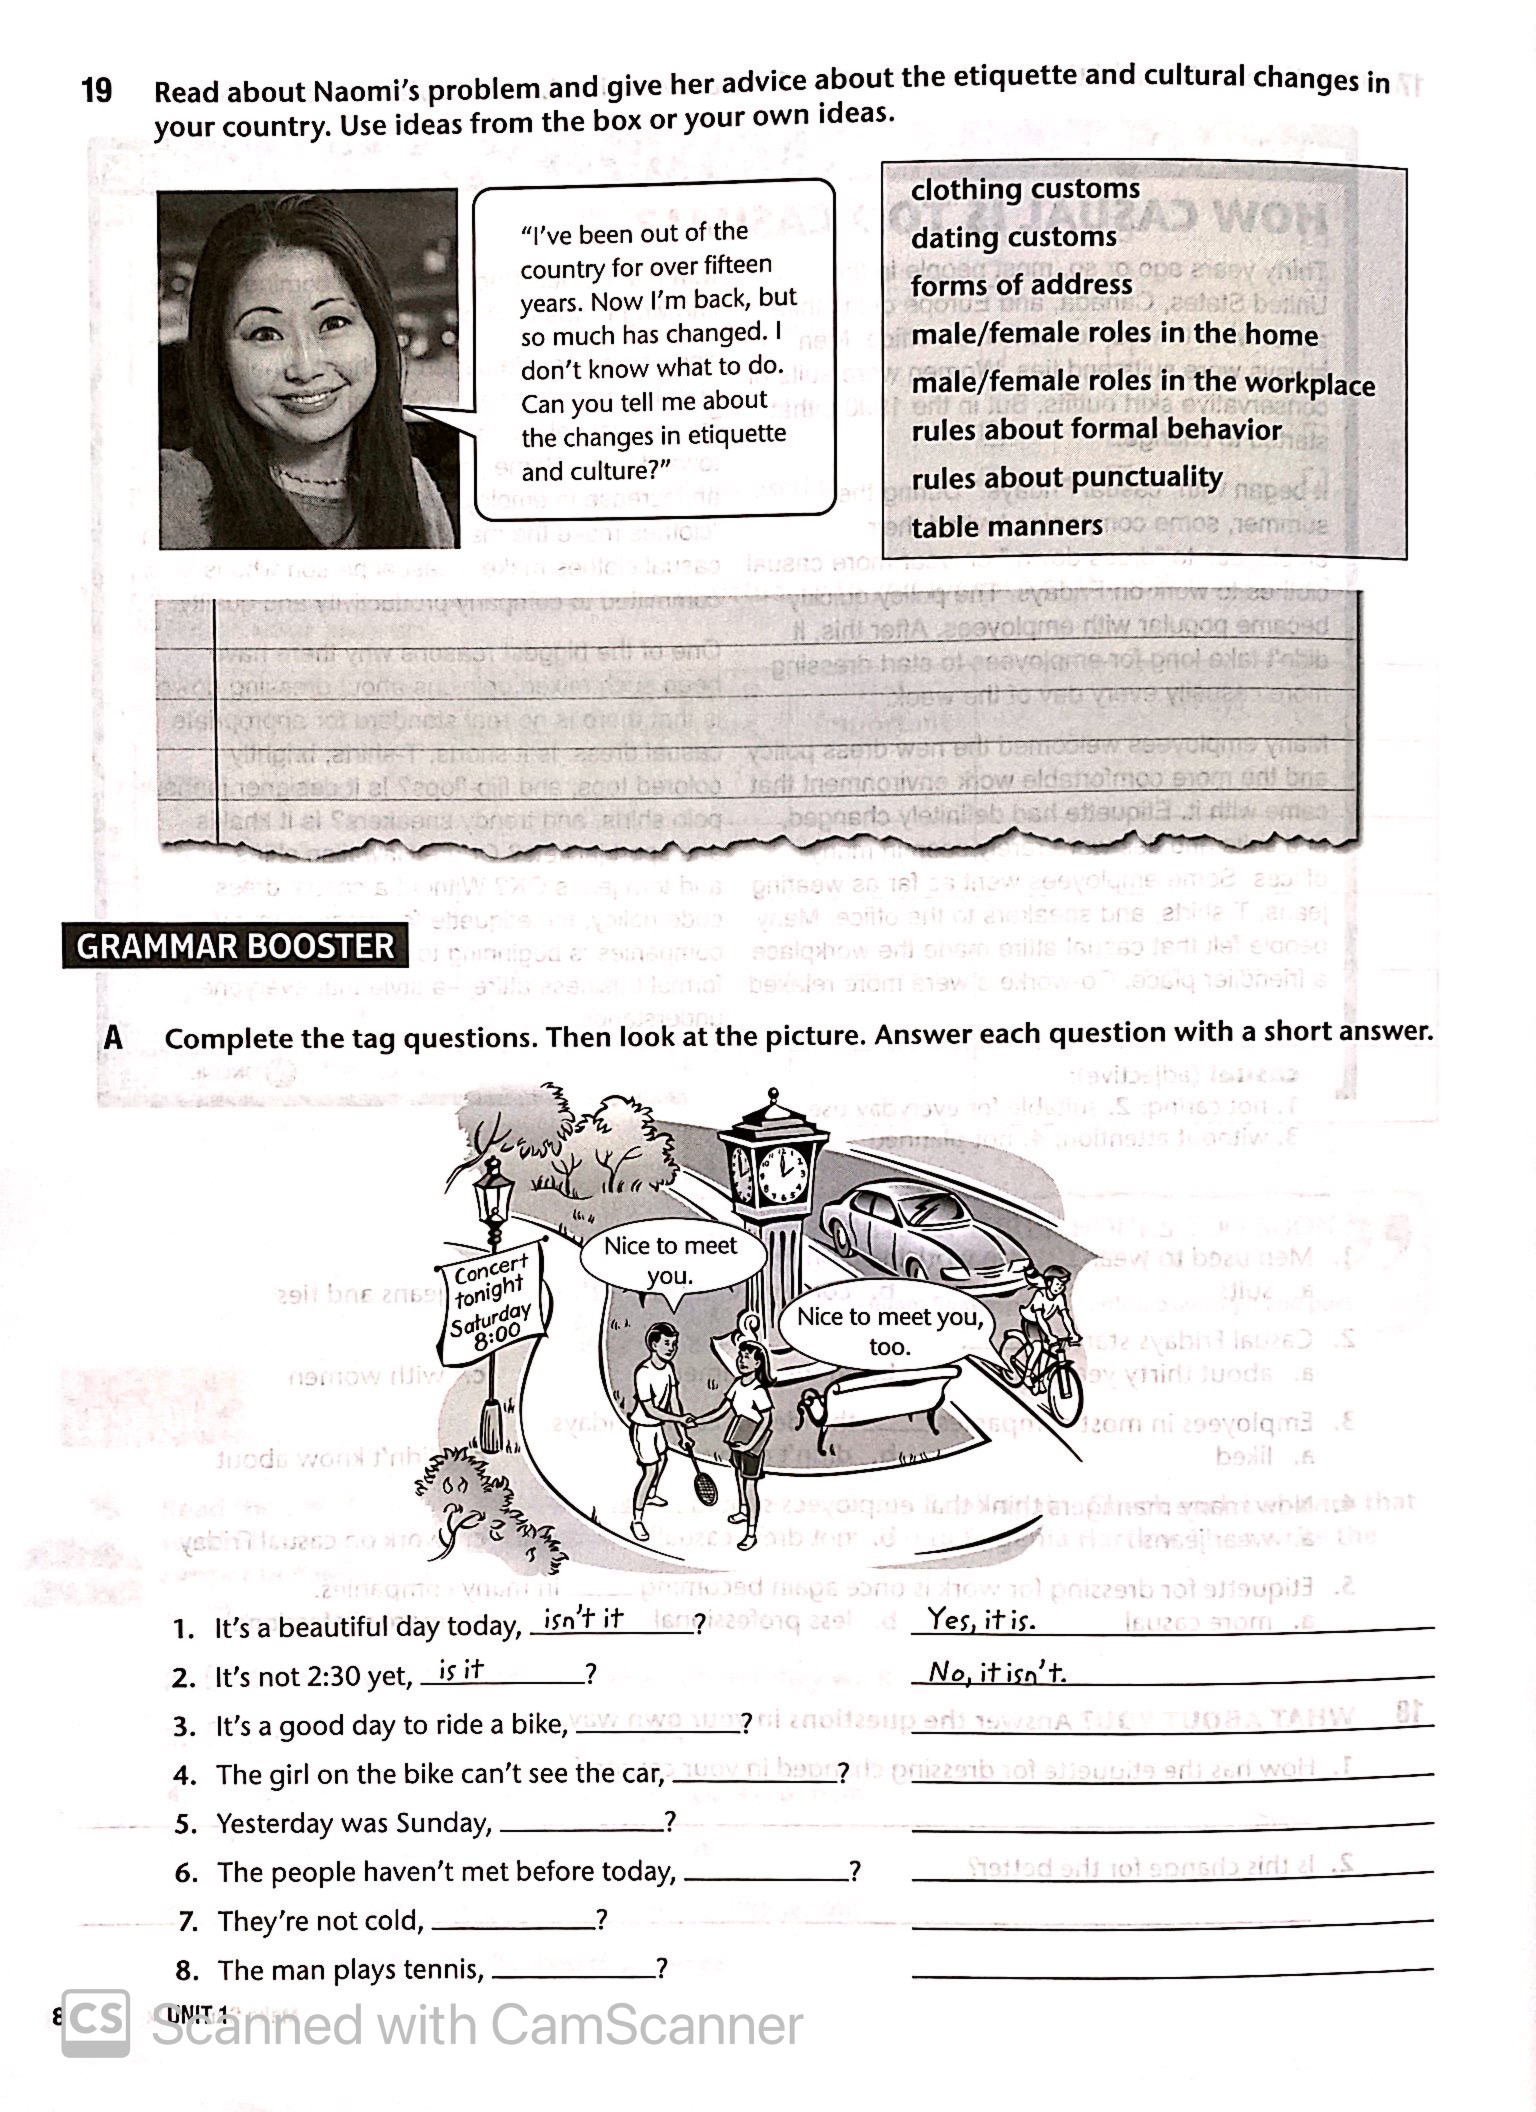 19 Read about Naomi's problem and give her advice about the etiquette and cultural changes in
your country. Use ideas from the box or your own ideas.
"I've been out of the
country for over fifteen
years. Now I'm back, but
so much has changed. I
don't know what to do.
Can you tell me about
the changes in etiquette
and culture?"
clothing customs
dating customs
forms of address
male/female roles in the home
male/female roles in the workplace
rules about formal behavior
rules about punctuality
table manners
GRAMMAR BOOSTER
A Complete the tag questions. Then look at the picture. Answer each question with a short answer.
Concert
tonight
Saturday
8:00
Nice to meet
you.
Nice to meet you,
too.
1. It's a beautiful day today, isn't it ? Yes, it is.
2. It's not 2:30 yet, is it ? No, it isn't.
3. It's a good day to ride a bike, ?
4. The girl on the bike can't see the car, ?
5. Yesterday was Sunday, ?
6. The people haven't met before today, ?
7. They're not cold, ?
8. The man plays tennis, ?
8 UNIT 1
CS Scanned with CamScanner